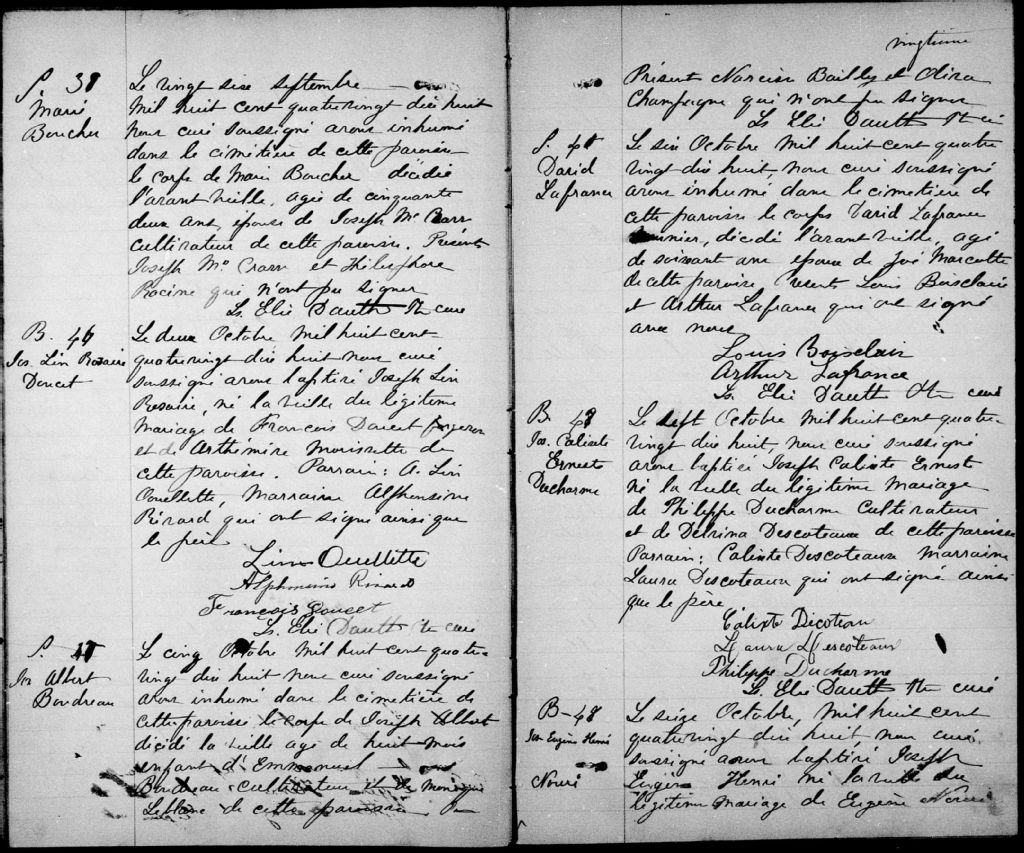 S. 38
Marie
Boucher
Le vingt six septembre
Mil huit cent quatrevingt dix huit
Nous curé soussigné avons inhumé
dans le cimetière de cette paroisse
le corps de Marie Boucher décédée
l'avant veille, agée de cinquante
deux ans, épouse de Joseph Mc Crarr
cultivateur de cette paroisse. Présent
Joseph Mc Crarr et Thélesphore
Racine qui n'ont pu signer
Ls. Elie Dauth Ptre curé
B. 46
Jos. Lin Rosaire
Doucet
Le deux Octobre Mil huit cent
quatrevingt dix huit nous curé
soussigné avons baptisé Joseph Lin
Rosaire, né la veille du légitime
Mariage de François Doucet forgeron
et de Arthémise Morissette de
cette paroisse. Parrain: A. Lin
Ouellette, Marraine Alphonsine
Rérard, qui ont signé ainsi que
le père
Lin Ouellette
Alphonsine
François Doucet
Ls. Elie Dauth Ptre curé
S.
Jos Albert
Boudreau
Le cinq Octobre Mil huit cent quatre-
vingt dix huit nous curé soussigné
avons inhumé dans le cimetière de
cette paroisse le corps de Joseph Albert
décédé la veille agé de huit mois
enfant d'Emmanuel
Boudreau cultivateur et de
Leblanc de cette paroisse
vingtième
Présent Narcisse Bailly et Oliva
Champagne qui n'ont pu signer
Ls. Elie Dauth Ptre cu
S. 40
David
Lafrance
Le six Octobre Mil huit cent quatre
vingt dix huit, nous curé soussigné
avons inhumé dans le cimetière de
cette paroisse le corps David Lafrance
décédé l'avant veille, agé
de soixante ans époux de Joé Marcotte
de cette paroisse Présent Louis Boisclair
et Arthur Lafrance qui ont signé
avec nous
Louis Boisclair
Arthur Lafrance
Ls. Elie Dauth Ptre curé
B.
Jos. Calixte
Ernest
Ducharme
Le sept Octobre Mil huit cent quatre-
vingt dix huit, nous curé soussigné
avons baptisé Joseph Calixte Ernest
né la veille du légitime mariage
de Philippe Ducharme Cultivateur
et de Delvina Descoteaux de cette paroisse
Parrain: Calixte Descoteaux Marraine
Laura Descoteaux qui ont signé ainsi
que le père
Calixte Dicoteau
Laura Descoteaux
Philippe Ducharme
Ls. Elie Dauth Ptre curé
B-48
Jos Eugène Henri
Nouri
Le seize Octobre, Mil huit cent
quatrevingt dix huit, nous curé
soussigné avons baptisé Joseph
Eugène Henri né la veille du
légitime mariage de Eugène Nouri